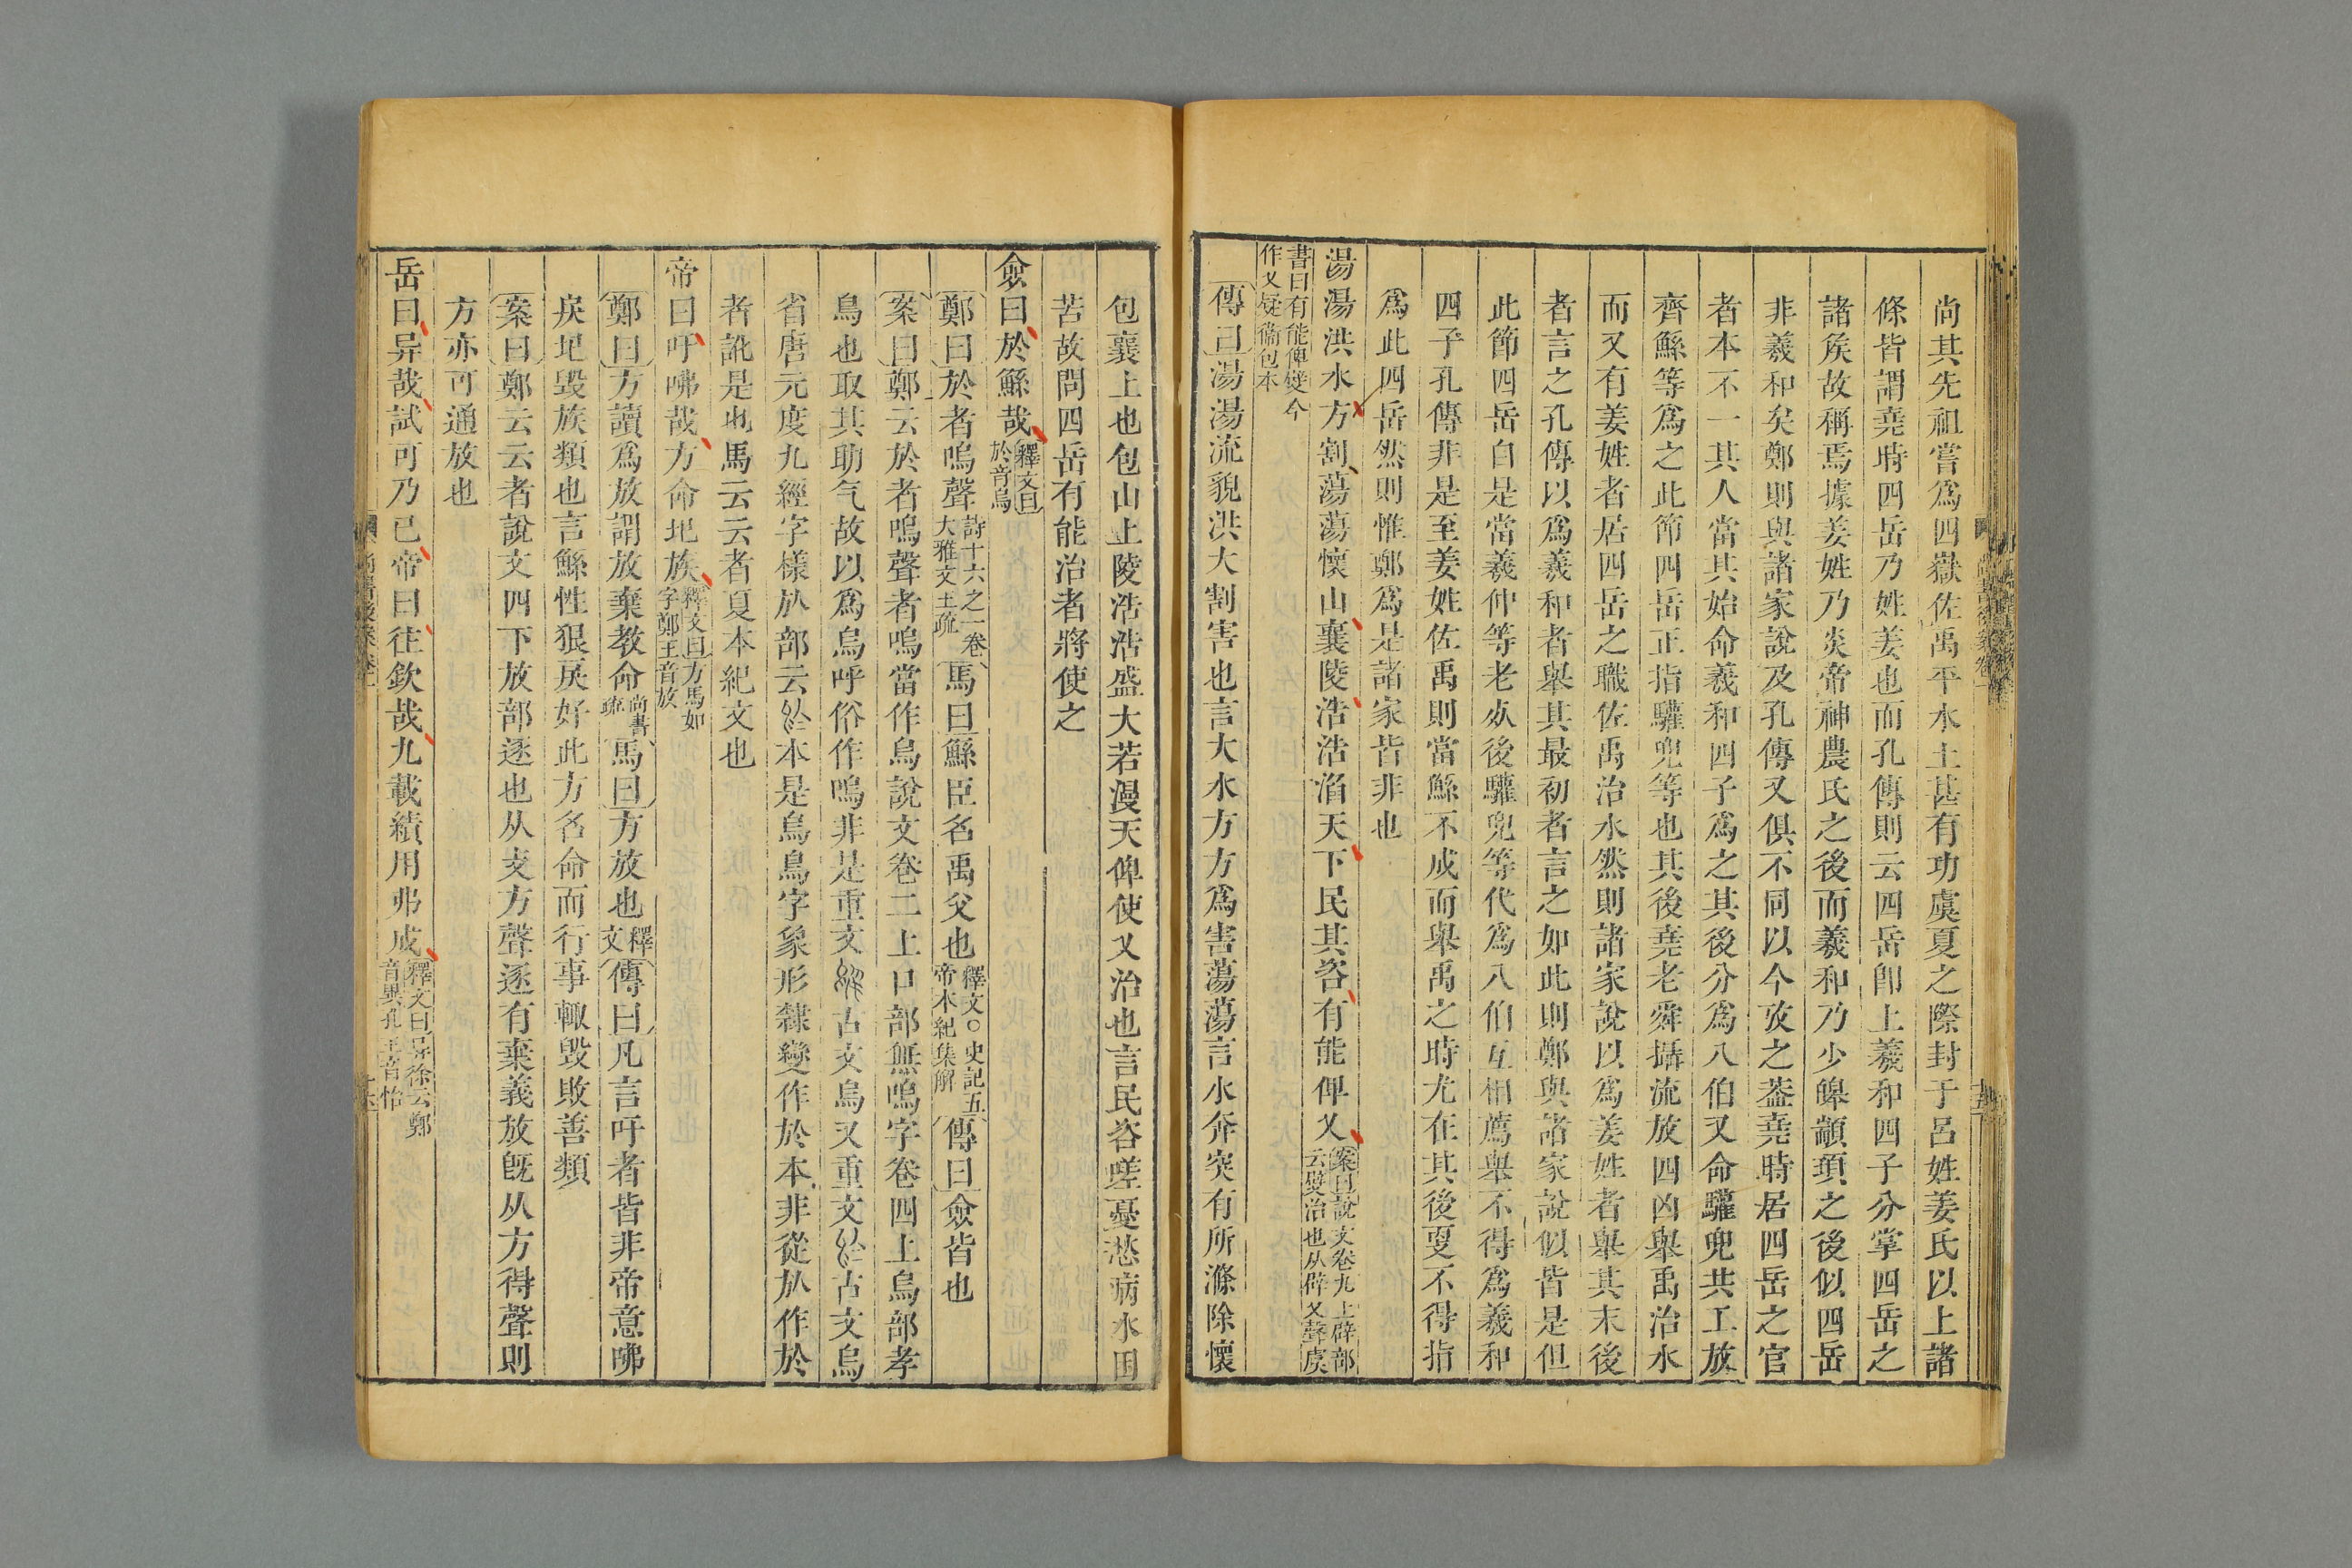 尚其先祖嘗爲四嶽佐禹平水土甚有功虞夏之際封于呂姓姜氏以上諸
條皆謂堯時四岳乃姓姜也而孔傳則云四岳卽上羲和四子分掌四岳之
諸矦故稱焉據姜姓乃炎帝神農氏之後而羲和乃少皥顓頊之後似四岳
非羲和矣鄭則與諸家說及孔傳又俱不同以今攷之葢堯時居四岳之官
者本不一其人當其始命羲和四子爲之其後分爲八伯又命驩兜共工放
齊鯀等爲之此節四岳正指驩兜等也其後堯老舜攝流放四凶舉禹治水
而又有姜姓者居四岳之職佐禹治水然則諸家說以爲姜姓者舉其末後
者言之孔傳以爲羲和者舉其最初者言之如此則鄭與諸家說似皆是但
此節四岳自是當羲仲等老死後驩兜等代爲八伯互相薦舉不得爲羲和
四子孔傳非是至姜姓佐禹則當鯀不成而舉禹之時尤在其後更不得指
爲此四岳然則惟鄭爲是諸家皆非也
湯湯洪水方割蕩蕩懷山襄陵浩浩滔天下民其咨有能俾乂
案曰說文卷九上辟部
云𡐦治也从辟乂聲虞
書曰有能俾𡐦今
作乂疑衞包本
傳曰湯湯流貌洪大割害也言大水方方爲害蕩蕩言水奔突有所滌除懷
包襄上也包山上陵浩浩盛大若漫天俾使乂治也言民咨嗟憂愁病水困
苦故問四岳有能治者將使之
僉曰於鯀哉
釋文曰
於音烏
鄭曰於者嗚聲
詩十六之一卷
大雅文王疏
馬曰鯀臣名禹父也
釋文○史記五
帝本紀集解
傳曰僉皆也
案曰鄭云於者嗚聲者嗚當作烏說文卷二上口部無嗚字卷四上烏部孝
鳥也取其助气故以爲烏呼俗作嗚非是重文古文烏又重文古文烏
省唐元度九經字樣㫃部云本是烏鳥字象形隸變作於本非從㫃作於
者訛是也馬云云者夏本紀文也
帝曰吁咈哉方命圮族
釋文曰方馬如
字鄭王音放
鄭曰方讀爲放謂放棄教命
尚書
疏
馬曰方放也
釋
文
傳曰凡言吁者皆非帝意咈
戾圮毀族類也言鯀性狠戾好此方名命而行事輒毀敗善類
案曰鄭云云者說文四下放部逐也从攴方聲逐有棄義放旣从方得聲則
方亦可通放也
岳曰异哉試可乃已帝曰往欽哉九載績用弗成
釋文曰异徐云鄭
音異孔王音怡